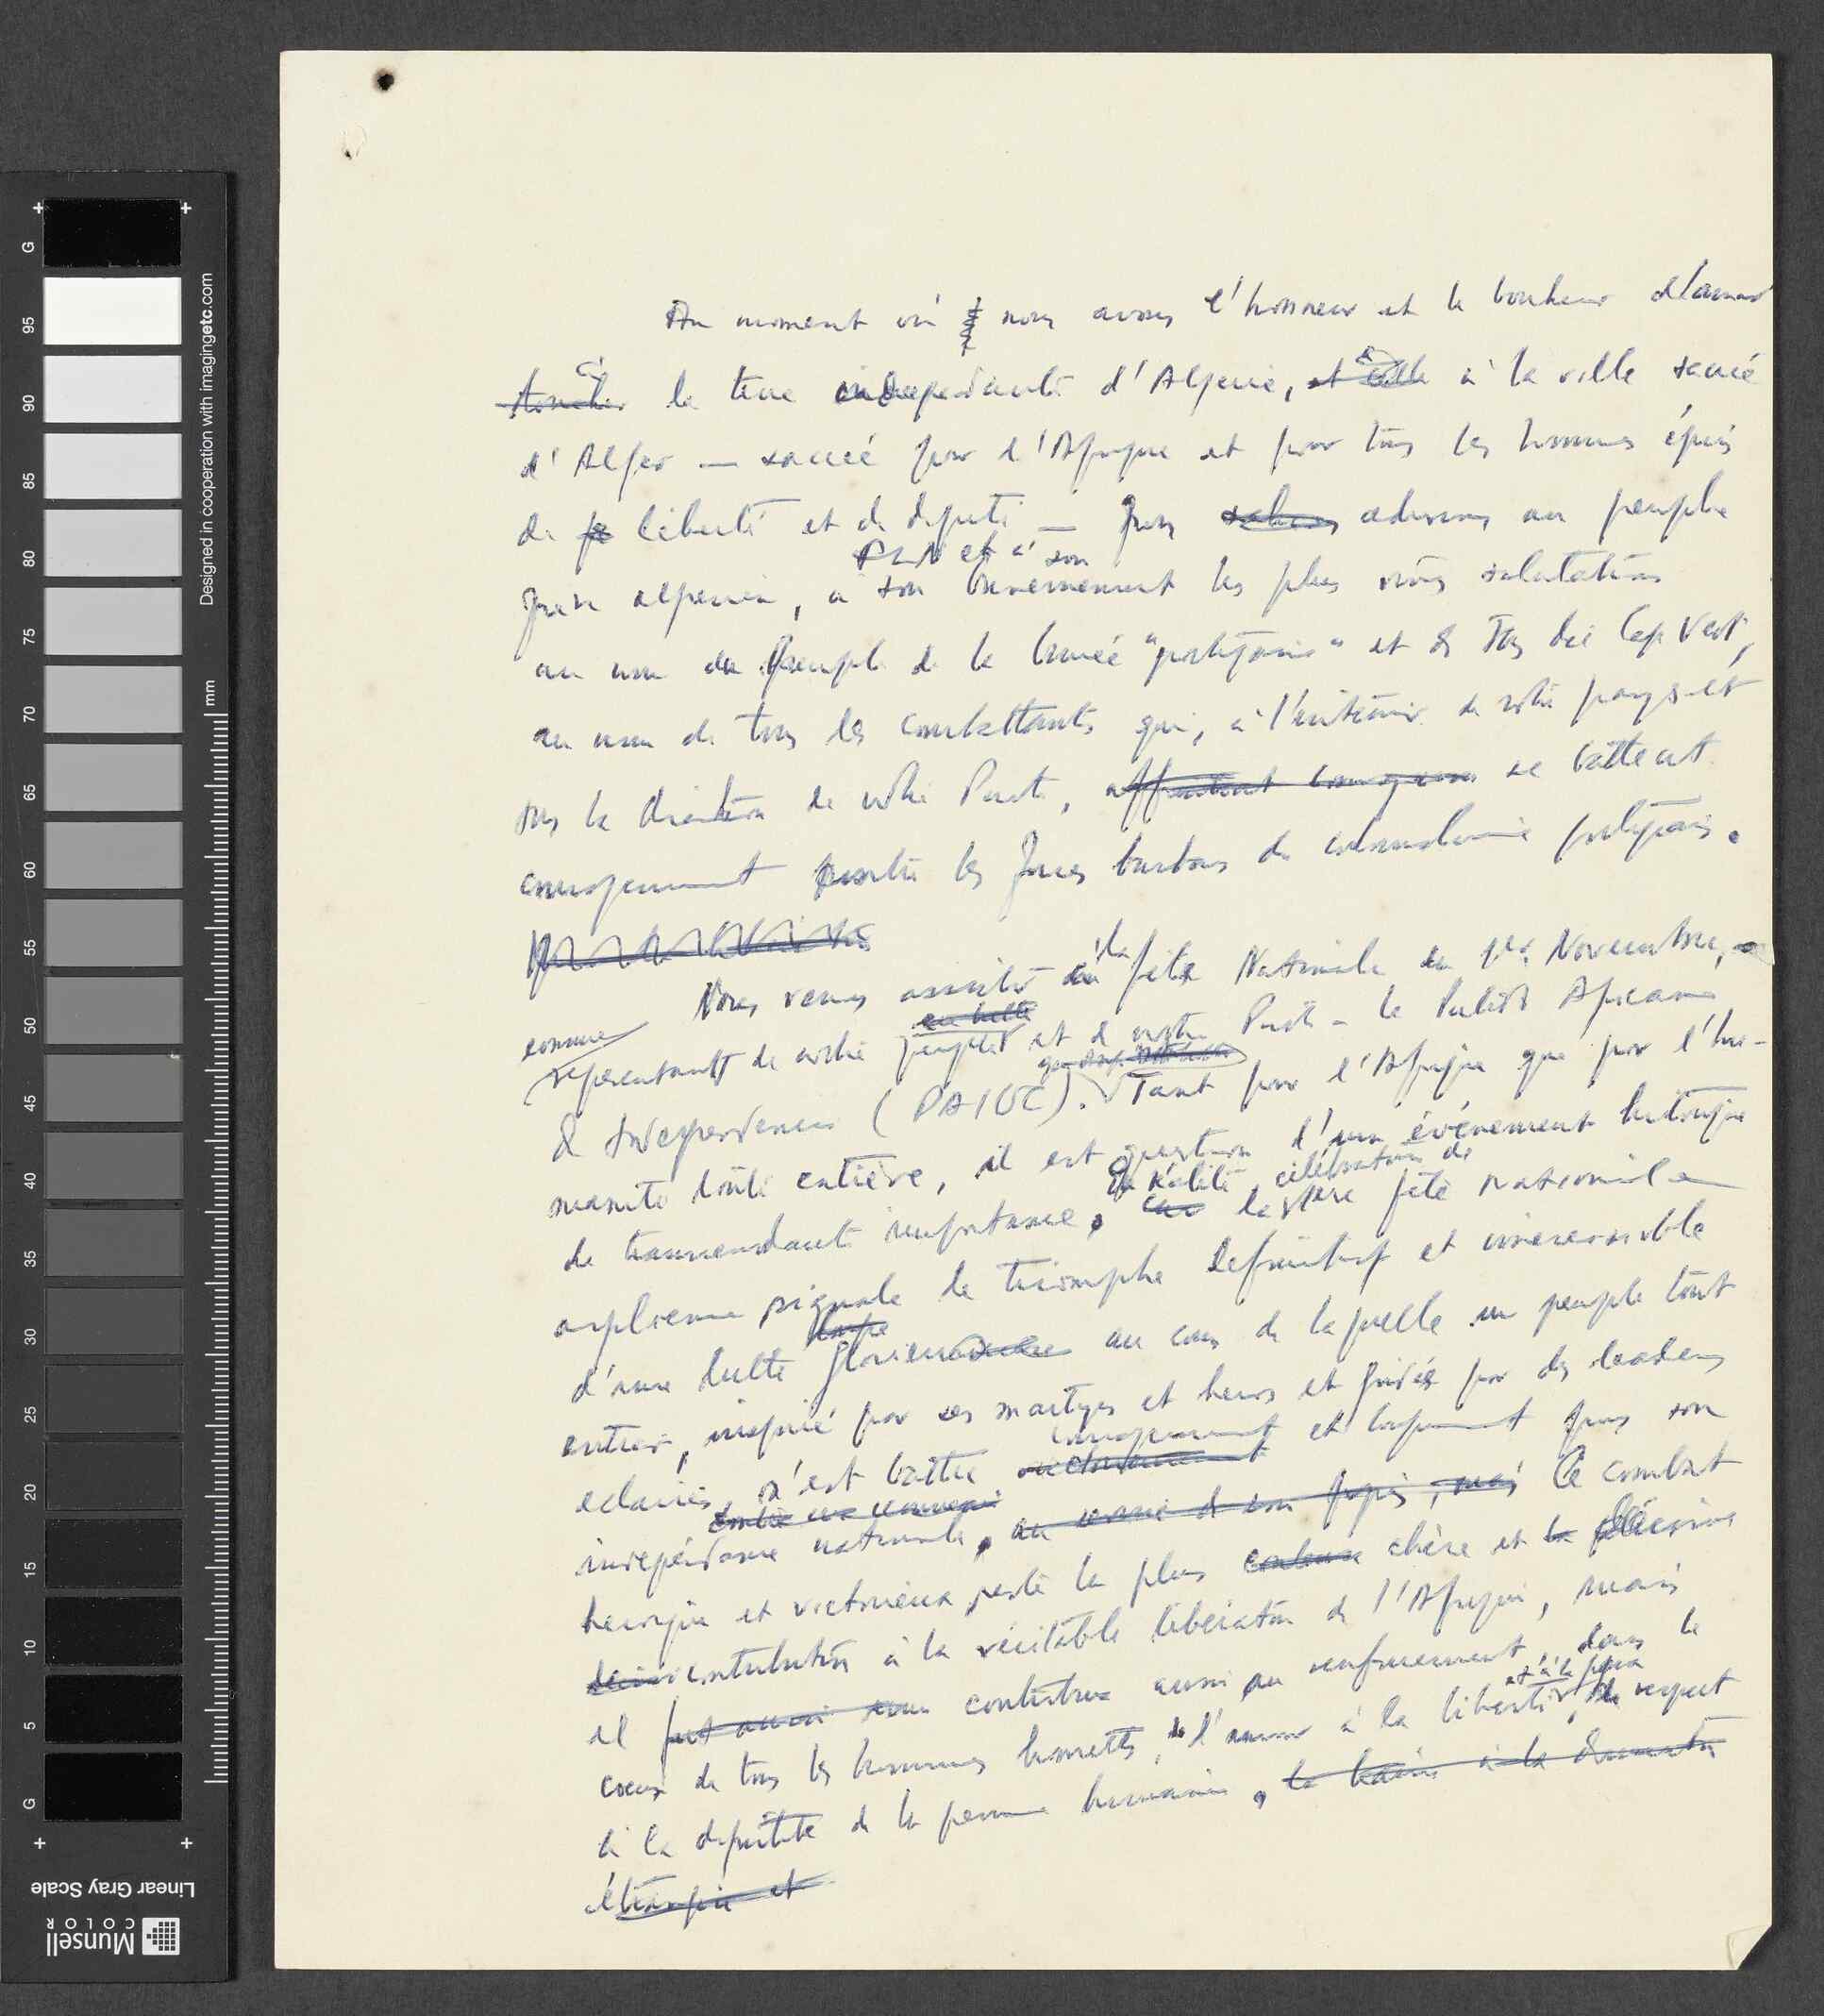 Au moment où nous avons l'honneur et le bonheur d'arriver
toucher à la terre independante d'Algerie, et celle à la ville sacrée
d'Alger — sacrée pour l'Afrique et pour tous les hommes épris
de liberté et de dignité — nous adressons au peuple
FLN et à son
frère algerien, à son Gouvernement les plus vives salutations
au nom du Peuple de la Guinée "portugaise" et des Iles du Cap Vert,
au nom de tous les combattants qui, à l'intérieur de notre pays et
sous la direction de notre Parti, affrontent courageus se battent
courageusement contre les forces barbares du colonialisme portugais.
Nous venons assister à la fête Nationale du 1er Novembre,
en lutte
comme représentant de notre peuple et de notre Parti - le Parti Africain
de Independance (PAIGC). Tant pour l'Afrique que pour l'hu-
manité toute entière, il est question d'un événement historique
En réalité célébration de
de transcendante importance, car la 1ère fête nationale
algérienne signale le triomphe definitif et irreversible
longue
d'une lutte glorieuse au cours de laquelle un peuple tout
entier, inspiré par ses martyrs et heros et guidé par des leaders
courageusement
eclairés, s'est battu victorieusement et longuement pour son
indépendance nationale, au Ce combat
heroique et victorieux reste la plus chère et la décisive
contribution à la véritable libération de l'Afrique, mais
il fut aussi une contribue aussi au renforcement, dans le
et à la paix
coeur de tous les hommes honnetes, de l'amour à la liberté, du respect
à la dignité de la personne humaine, la haine à la domination
étrangère et
Designed in cooperation with imagingetc.com
mm
G
95
90
85
80
75
70
65
60
55
50
45
40
35
30
25
20
15
10
5
G
Linear Gray Scale
Munsell
COLOR